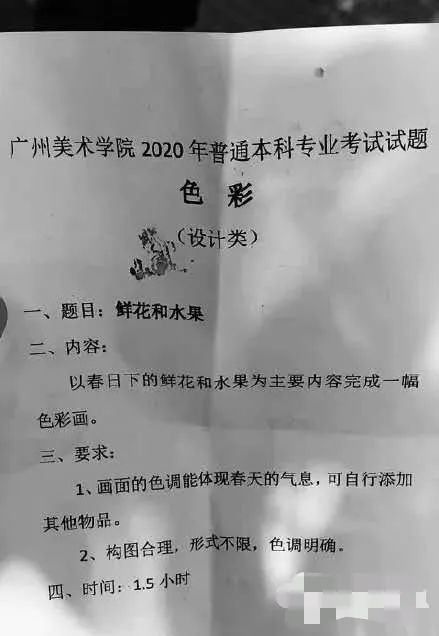 广州美术学院 2020 年普通本科专业考试试题
色 彩
（设计类）
一、题目：鲜花和水果
二、内容：
以春日下的鲜花和水果为主要内容完成一幅
色彩画。
三、要求：
1、画面的色调能体现春天的气息，可自行添加
其他物品。
2、构图合理，形式不限，色调明确。
四、时间：1.5 小时